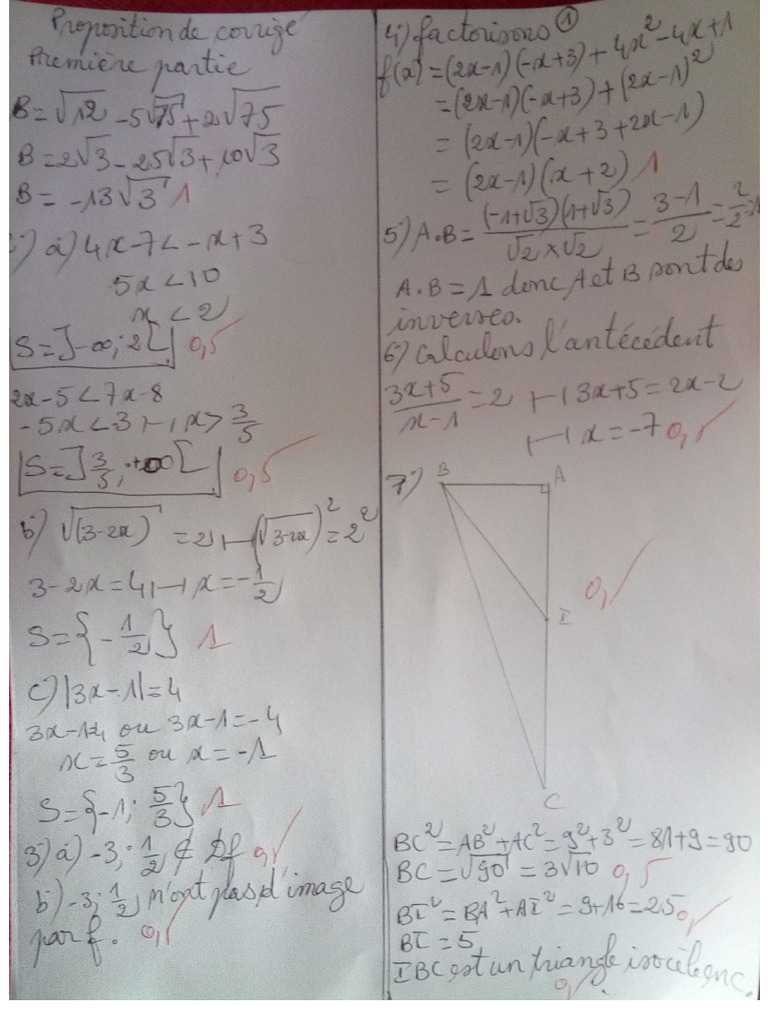 Proposition de corrigé
Première partie
B = √12 - 5√75 + 2√75
B = 2√3 - 25√3 + 10√3
B = -13√3 1
a) 4x - 7 < -x + 3
5x < 10
x < 2
S = ]-∞; 2[ 0,5
2x - 5 < 7x - 8
-5x < -3 ⟼ x > 3/5
S = ]3/5; +∞[ 0,5
b) √(3-2x) = 2 ⟼ (√3-2x)² = 2²
3 - 2x = 4 ⟼ x = -1/2
S = {-1/2} 1
c) |3x - 1| = 4
3x-1=4 ou 3x-1 = -4
x = 5/3 ou x = -1
S = {-1; 5/3} 1
3) a) -3; 1/2 ∉ Df 0,5
b) -3; 1/2 n'ont pas d'image
par f. 0,5
4) factorisons ①
f(x) = (2x-1)(-x+3) + 4x² - 4x + 1
= (2x-1)(-x+3) + (2x-1)²
= (2x-1)(-x+3+2x-1)
= (2x-1)(x+2) 1
5) A.B = (-1+√3)(1+√3)/√2×√2 = 3-1/2 = 2/2 = 1
A.B = 1 donc A et B sont des
inverses.
6) Calculons l'antécédent
3x+5/x-1 = 2 ⟼ 3x+5 = 2x-2
⟼ x = -7 0,5
7) B A
0,5
I
C
BC² = AB² + AC² = 9² + 3² = 81 + 9 = 90
BC = √90 = 3√10 0,5
BI² = BA² + AI² = 9 + 16 = 25 0,5
BI = 5
IBC est un triangle isocèle en C.